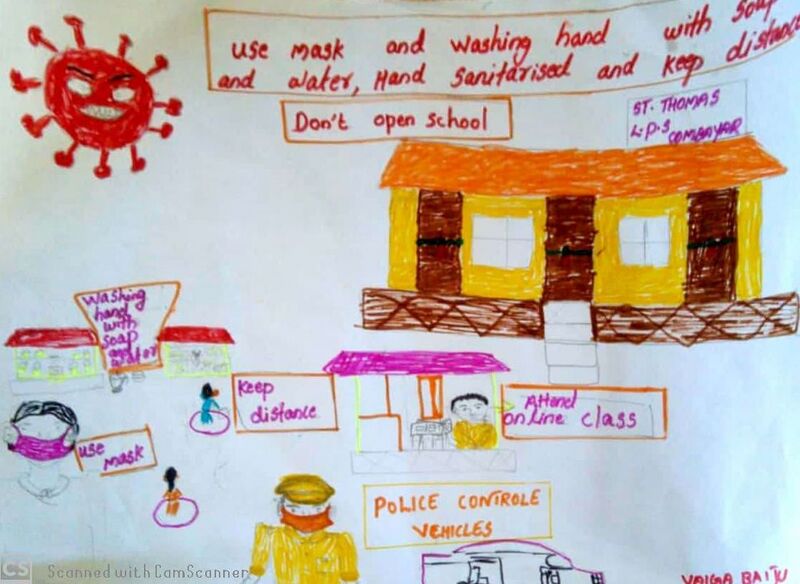 use mask and washing hand with soap
and water, Hand sanitarised and keep distance
Don't open school
ST. THOMAS
L.P.S
COMBAYAR
Washing
hand
with
soap
and
water
Keep
distance
Attend
online class
use
mask
POLICE CONTROLE
VEHICLES
VAIGA BAIJU
CS Scanned with CamScanner